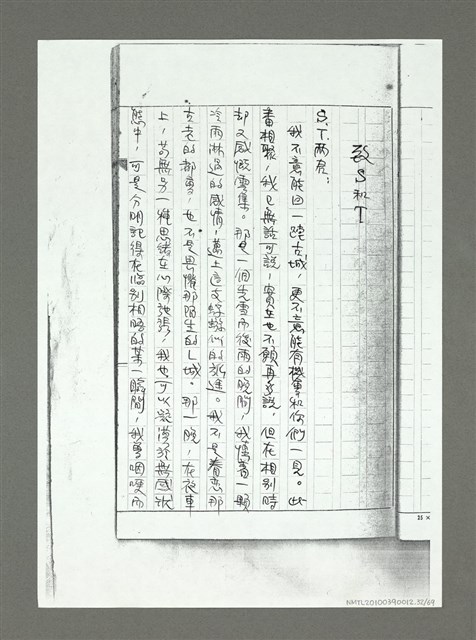 致S和T
S.T.兩君:
我不意能回一踏古城,更不意能有機會和你們一見。此
番相聚,我已無話可說,實在也不願再多說,但在相別時
却又感慨雲集。那是一個先雪而後雨的晚間,我懷着一顆
冷雨淋過的感情,邁上這支蜉蝣似的征途。我不是眷戀那
古老的都會,也不是畏懼那陌生的L城。那一晚,在夜車
上,若無另一種思緒在心際弛張,我也可以說清於無感狀
態中,可是分明記得在臨別相晤的某一瞬間,我曾咽哽而
25 ×
NMTL20100390012.32/69